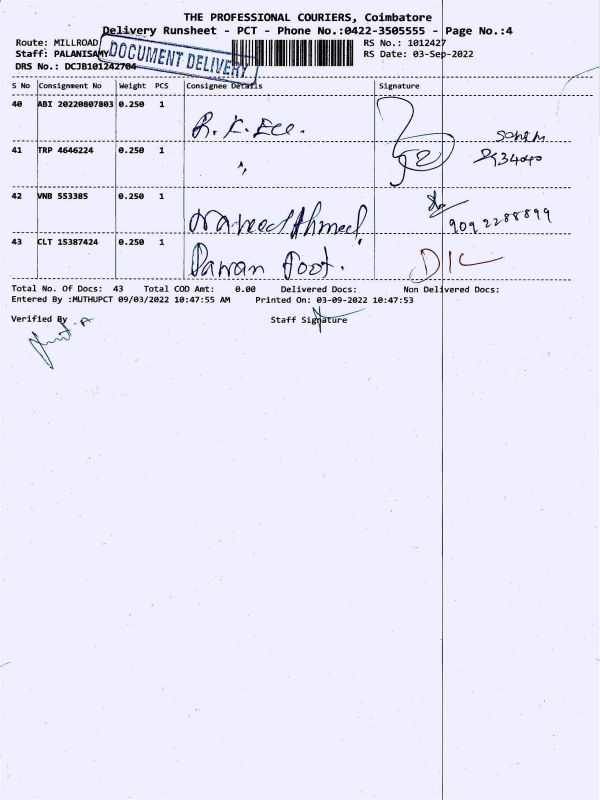 THE PROFESSIONAL COURIERS, Coimbatore
Delivery Runsheet - PCT - Phone No.:0422-3505555 - Page No.:4
Route: MILLROAD RS No.: 1012427
Staff: PALANISAMY DOCUMENT DELIVERY RS Date: 03-Sep-2022
DRS No.: DCJB101242704
S No Consignment No Weight PCS Consignee Details Signature
40 ABI 20220807803 0.250 1 R. K. Ece.
41 TRP 4646224 0.250 1 "
42 VNB 553385 0.250 1 Naveed Ahmed 9092288899
43 CLT 15387424 0.250 1 Pawan Foot. D/C
Total No. Of Docs: 43 Total COD Amt: 0.00 Delivered Docs: Non Delivered Docs:
Entered By :MUTHUPCT 09/03/2022 10:47:55 AM Printed On: 03-09-2022 10:47:53
Verified By Staff Signature